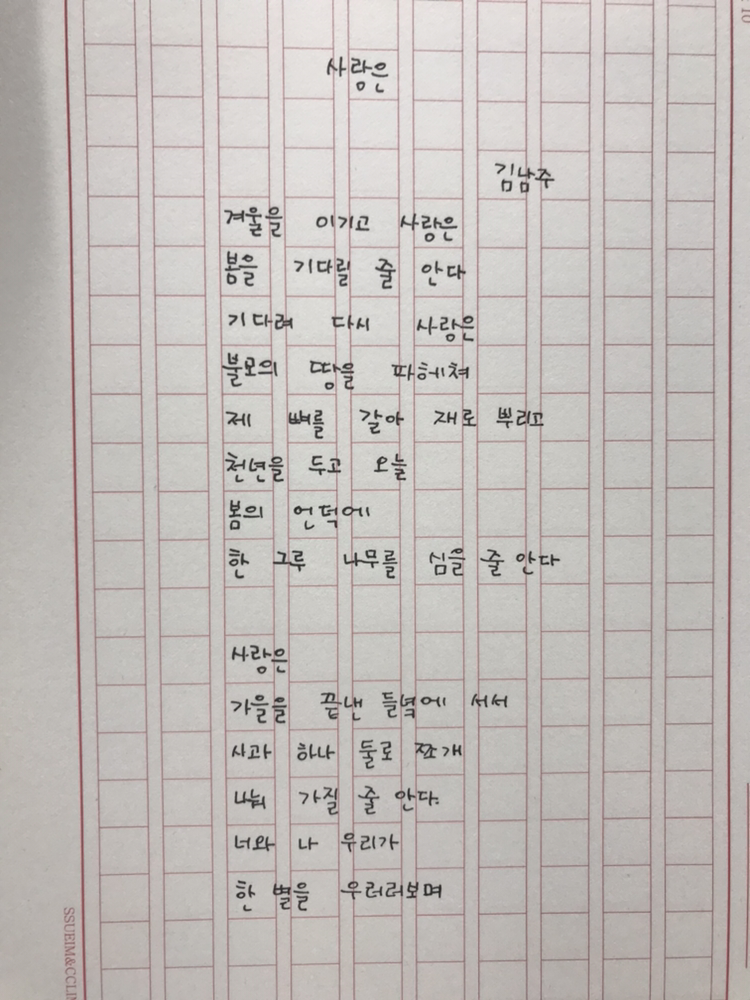 사랑은
김남주
겨울을 이기고 사랑은
봄을 기다릴 줄 안다
기다려 다시 사랑은
불모의 땅을 파헤쳐
제 뼈를 갈아 재로 뿌리고
천년을 두고 오늘
봄의 언덕에
한 그루 나무를 심을 줄 안다
사랑은
가을을 끝낸 들녘에 서서
사과 하나 둘로 쪼개
나눠 가질 줄 안다.
너와 나 우리가
한 별을 우러러보며
SSUEIM&CCLIM
10